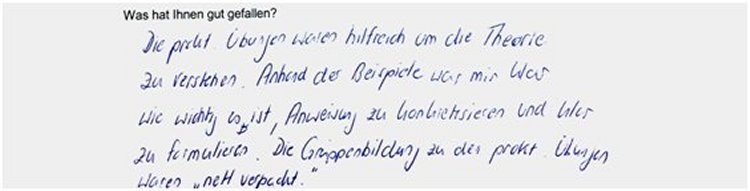 Was hat Ihnen gut gefallen?
Die prakt. Übungen waren hilfreich um die Theorie
zu verstehen. Anhand der Beispiele war mir klar
wie wichtig es ist, Anweisung zu konkretisieren und klar
zu formulieren. Die Gruppenbildung zu den prakt. Übungen
waren „nett verpackt."